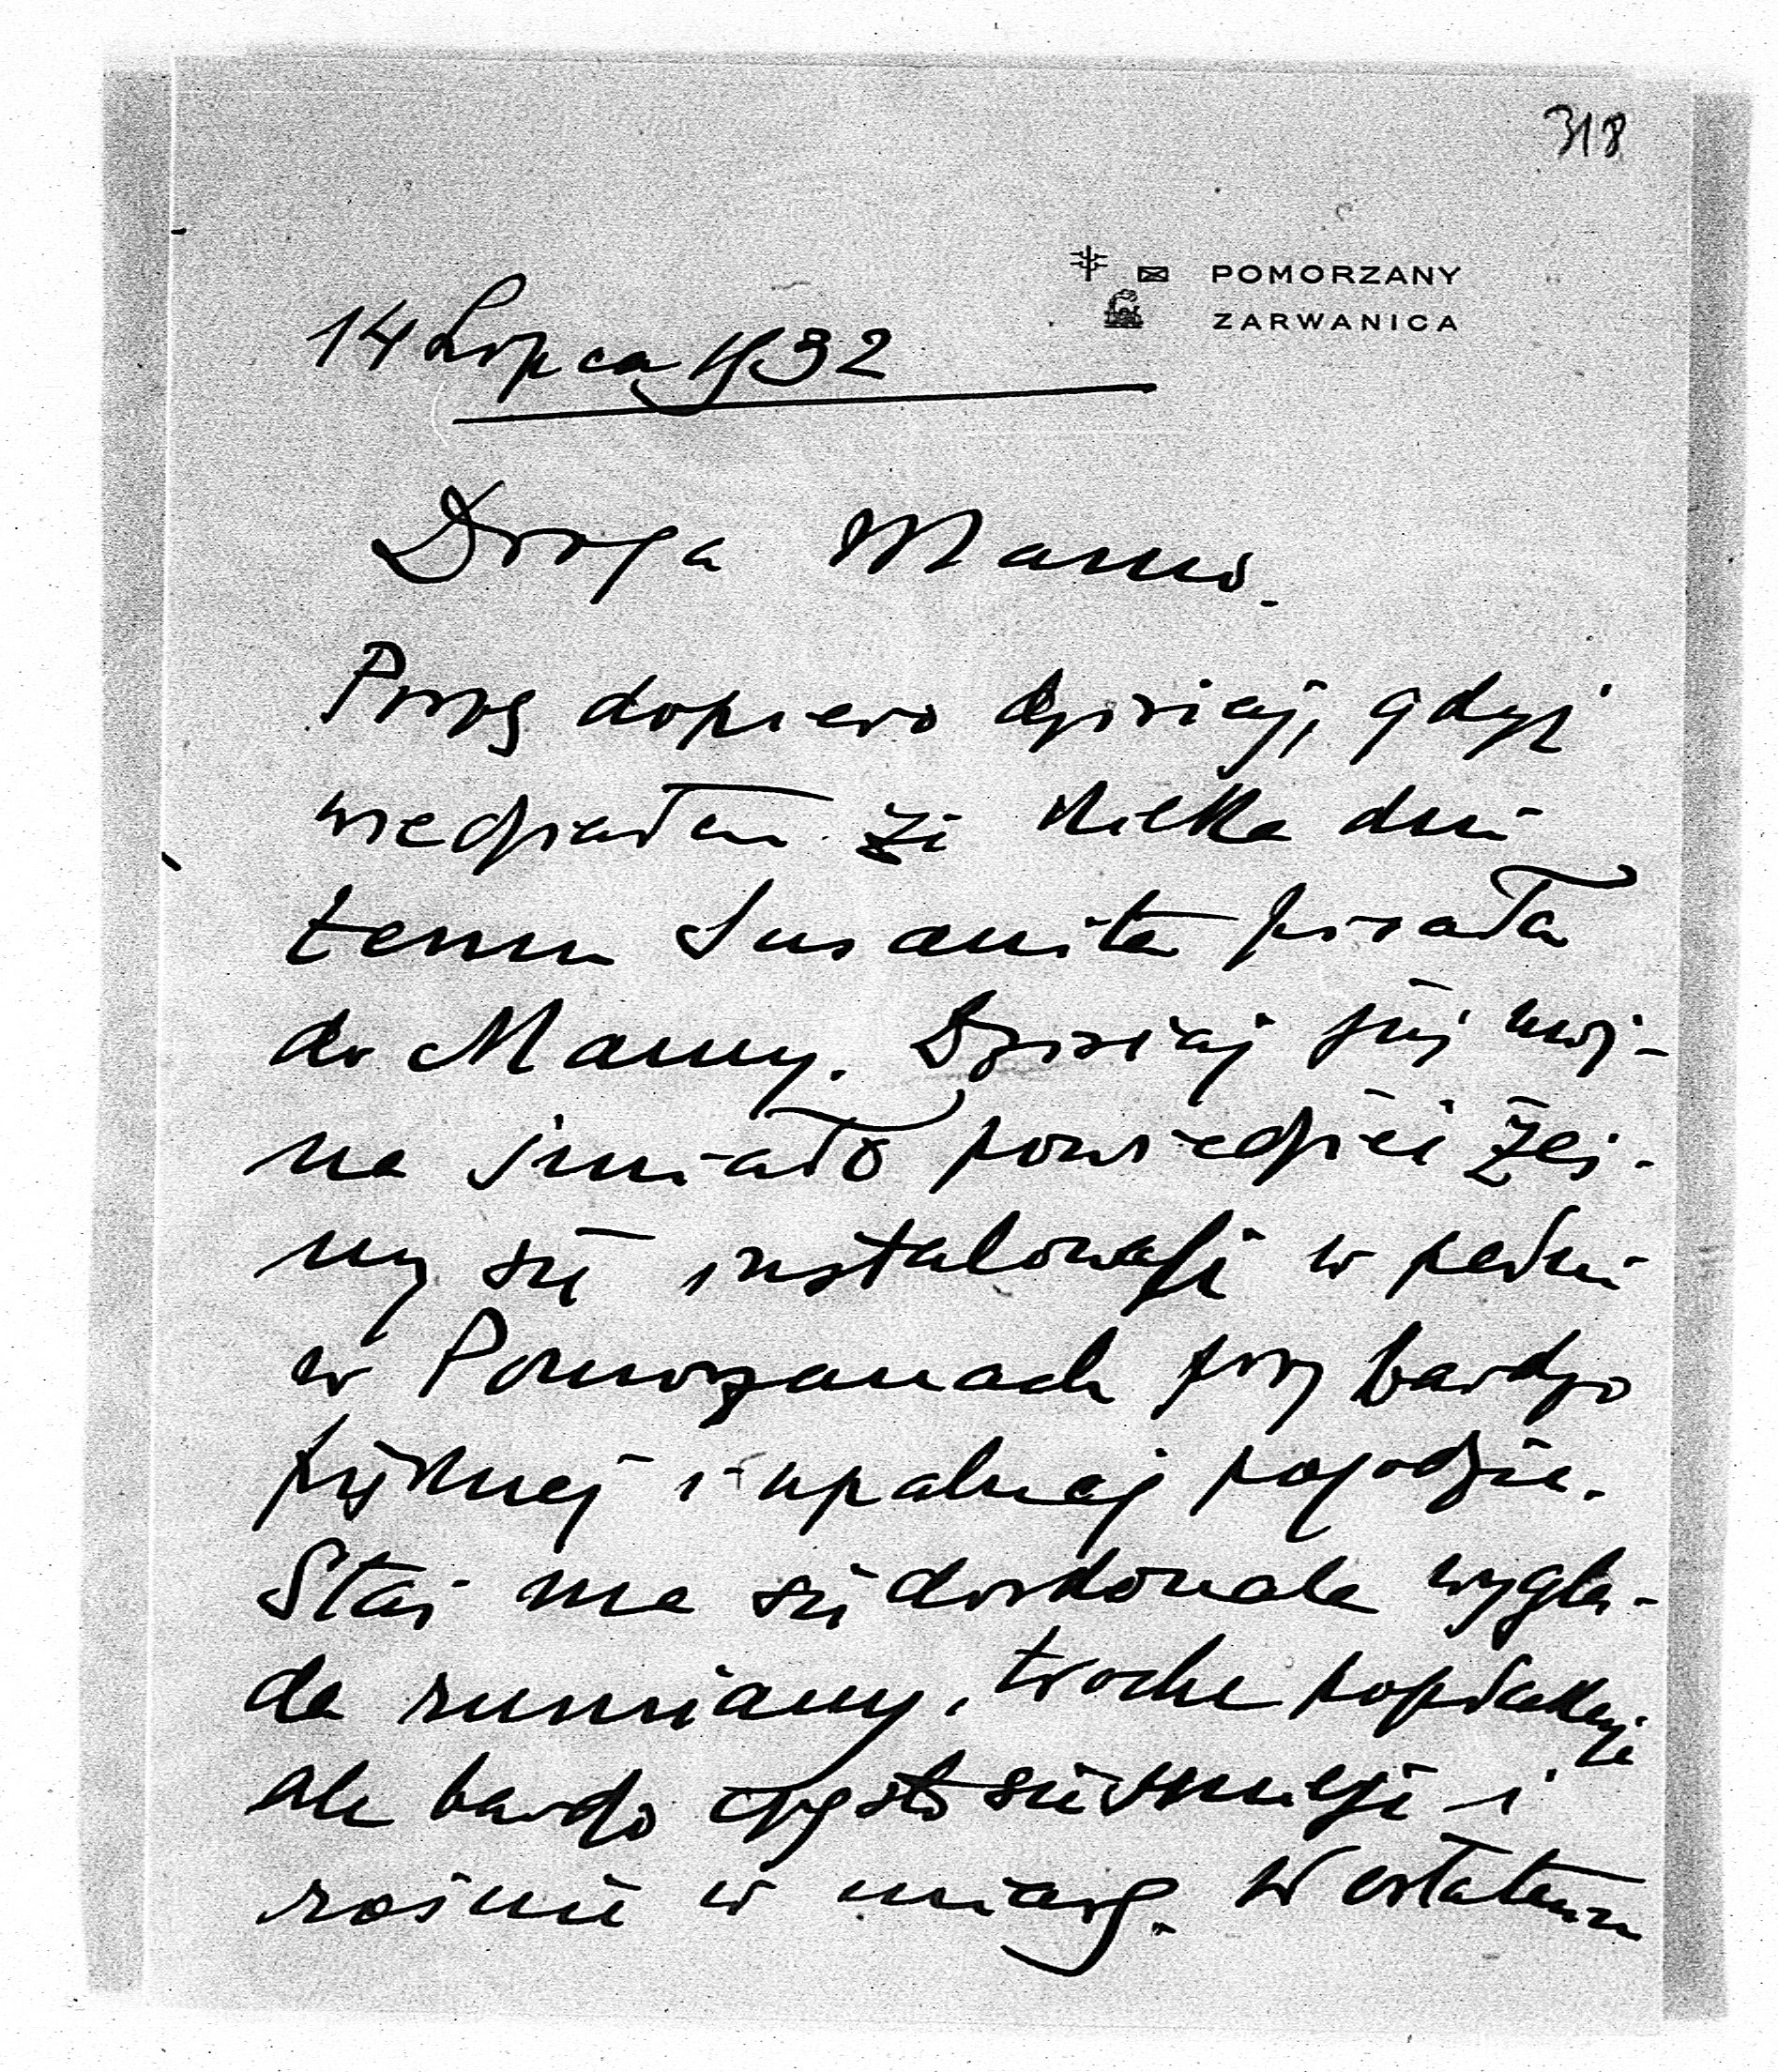 318
POMORZANY
ZARWANICA
14 Lipca 1932
Droga Mamo.
Piszę dopiero dzisiaj, gdyż
wiedziałem że kilka dni
temu Susanita pisała
do Mamy. Dzisiaj już moż-
na śmiało powiedzieć żeś-
my się instalowali w pełni
w Pomorzanach przy bardzo
pięknej i upalnej pogodzie.
Staś ma się doskonale wyglą-
da rumiany, trochę popłakuje
ale bardzo często się śmieje i
rośnie w miarę. W ostatnim